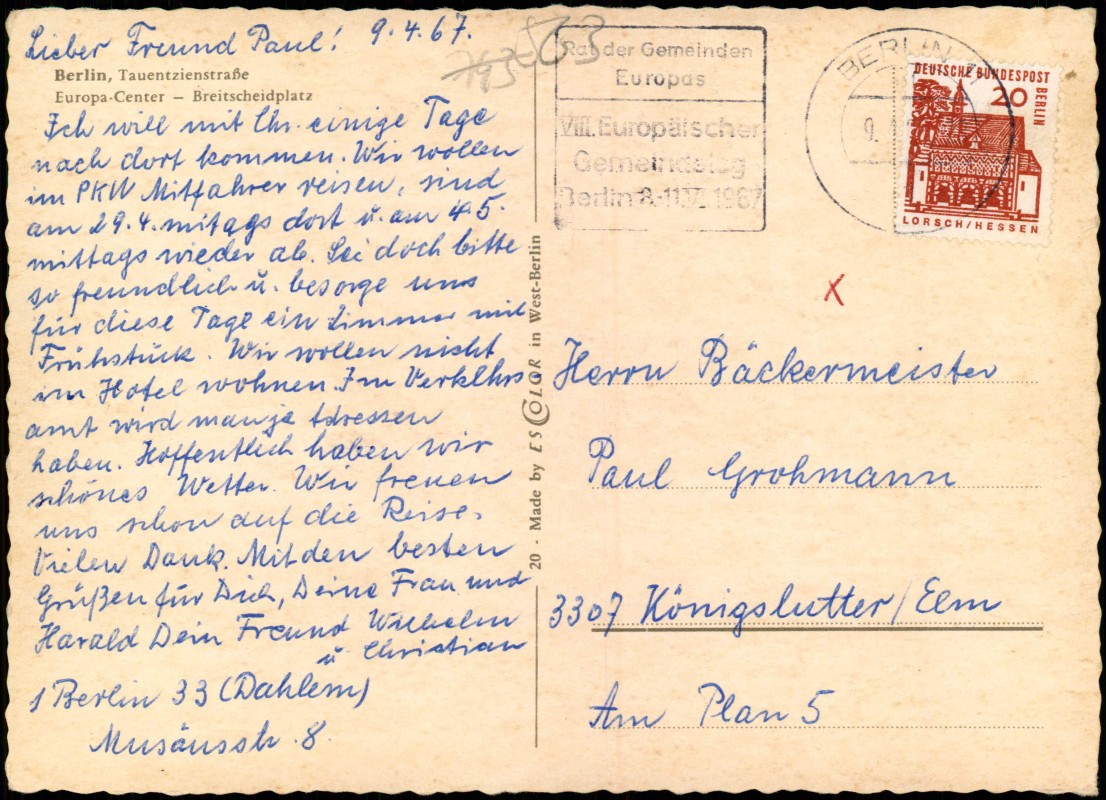 Lieber Freund Paul! 9.4.67.
Berlin, Tauentzienstraße
Europa-Center – Breitscheidplatz
Ich will mit Chr. einige Tage
nach dort kommen. Wir wollen
im PKW Mitfahrer reisen, sind
am 29.4. mitags dort u. am 4.5.
mittags wieder ab. Sei doch bitte
so freundlich u. besorge uns
für diese Tage ein Zimmer mit
Frühstück. Wir wollen nicht
im Hotel wohnen. Im Verkehrs
amt wird man ja Adressen
haben. Hoffentlich haben wir
schönes Wetter. Wir freuen
uns schon auf die Reise.
Vielen Dank. Mit den besten
Grüßen für Dich, Deine Frau und
Harald Dein Freund Wilhelm
u Christian
1 Berlin 33 (Dahlem)
Musäusstr. 8.
20 - Made by ESCOLOR in West-Berlin
Rat der Gemeinden
Europas
VIII. Europäischer
Gemeindetag
Berlin 8.-11.VI.1967
BERLIN
9.
DEUTSCHE BUNDESPOST
BERLIN
20
LORSCH/HESSEN
x
Herrn Bäckermeister
Paul Grohmann
3307 Königslutter/Elm
Am Plan 5